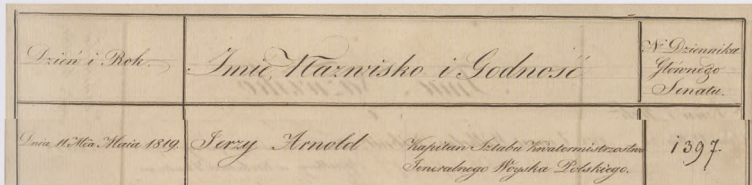 Dzień i Rok.
Imie, Nazwisko i Godność
N Dziennika
Głównego
Senatu.
Dnia 11 Mca Maia 1819.
Jerzy Arnold
Kapitan Sztabu Kwatermistrzostwa
Jeneralnego Woyska Polskiego.
1397.